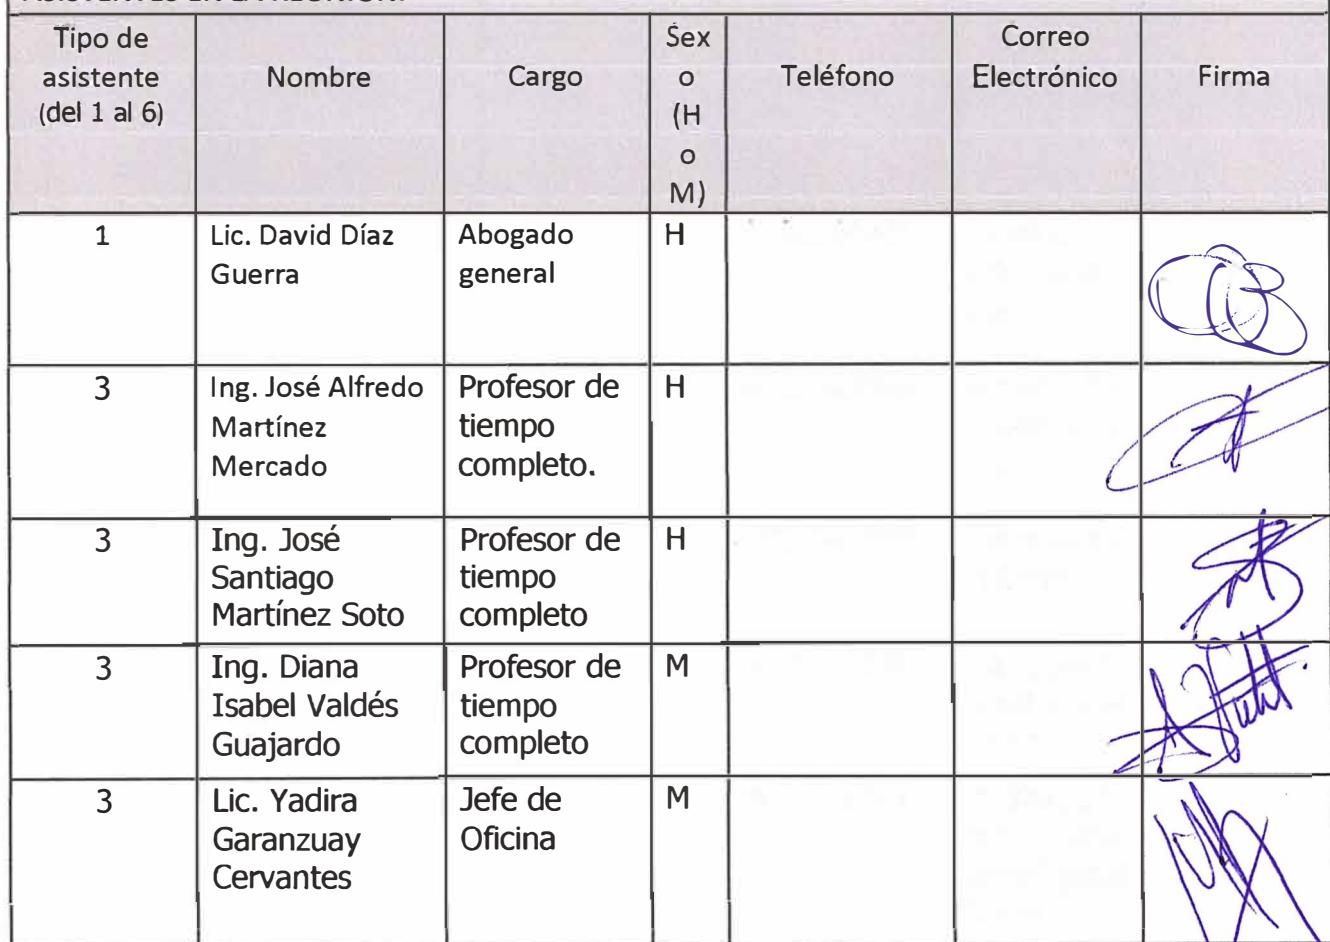 Tipo de asistente (del 1 al 6) Nombre Cargo Sexo (H o M) Teléfono Correo Electrónico Firma
1 Lic. David Díaz Guerra Abogado general H
3 Ing. José Alfredo Martínez Mercado Profesor de tiempo completo. H
3 Ing. José Santiago Martínez Soto Profesor de tiempo completo H
3 Ing. Diana Isabel Valdés Guajardo Profesor de tiempo completo M
3 Lic. Yadira Garanzuay Cervantes Jefe de Oficina M